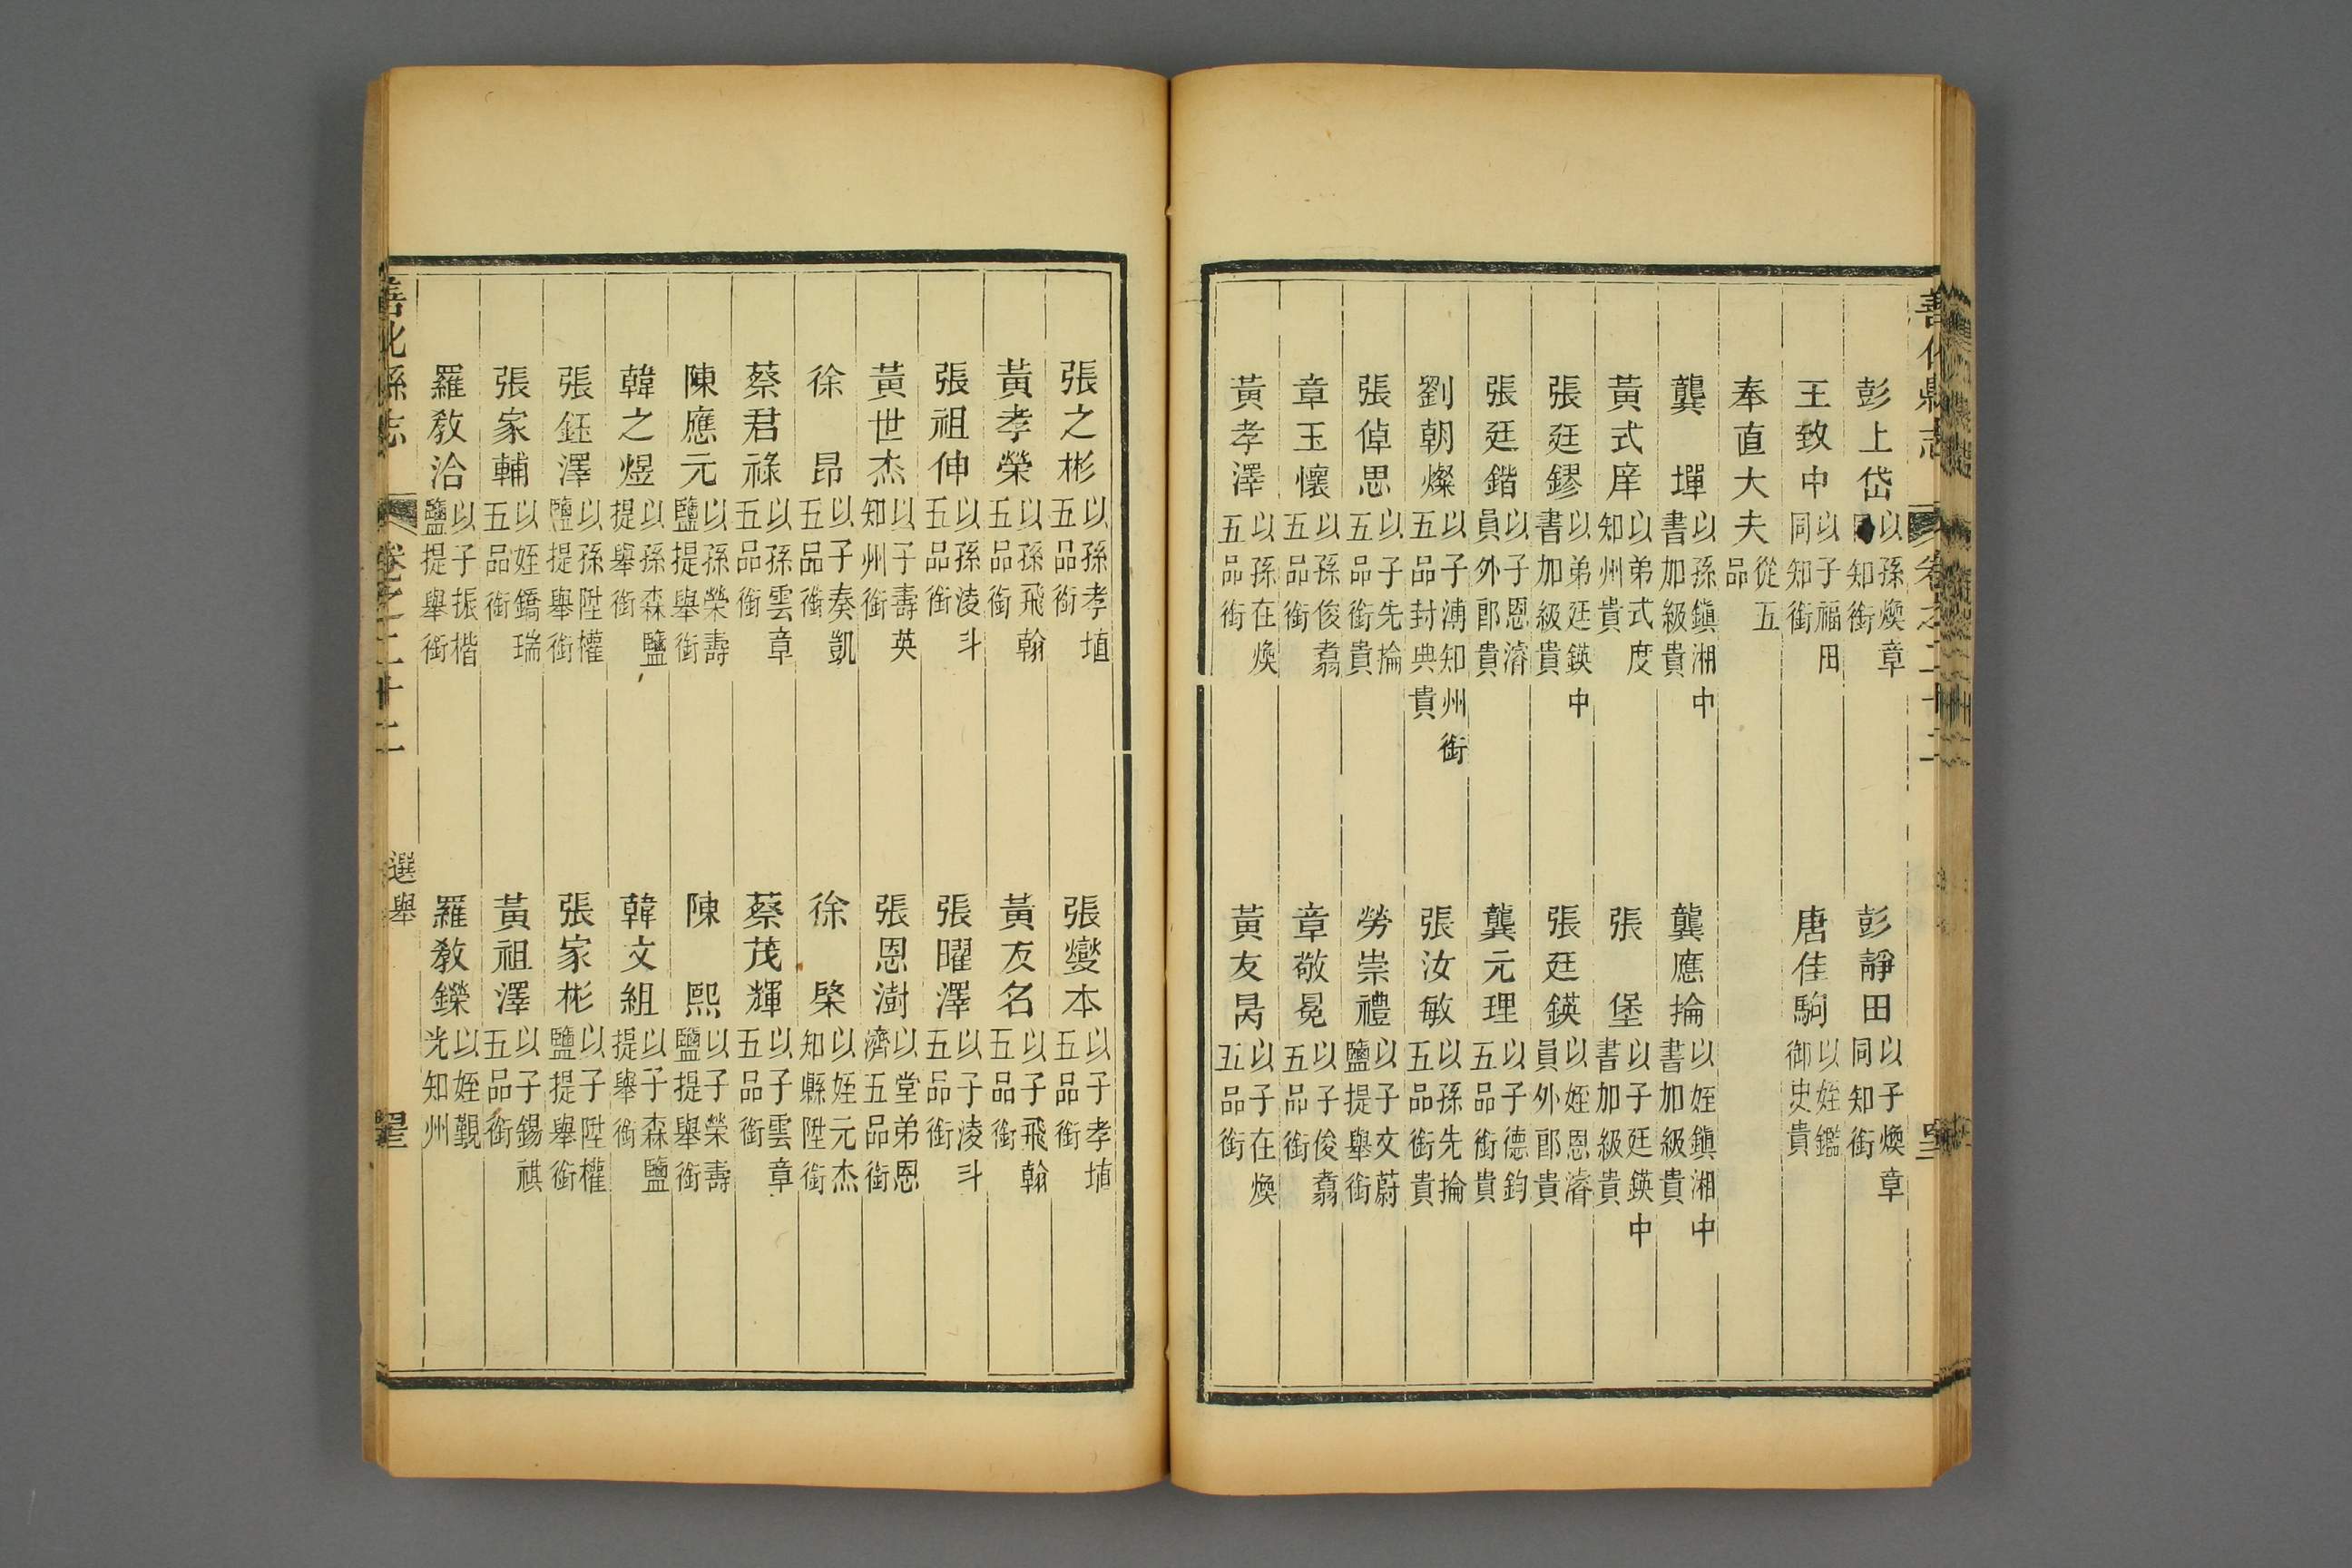 善化縣志 卷之二十二
彭上岱 以孫煥章知銜 彭靜田 以子煥章同知銜
王致中 以子福田同知銜 唐佳駒 以姪鑑御史貴
奉直大夫 從五品
龔墠 以孫鎮湘中書加級貴 龔應掄 以姪鎮湘中書加級貴
黃式庠 以弟式度知州貴 張堡 以子廷鍈中書加級貴
張廷鏐 以弟廷鍈中書加級貴 張廷鍈 以姪恩濬員外郎貴
張廷鍇 以子恩濬員外郎貴 龔元理 以子德鈞五品銜貴
劉朝燦 以子溥知州銜五品封典貴 張汝敏 以孫先掄五品銜貴
張倬思 以子先掄五品銜貴 勞崇禮 以子文蔚鹽提舉銜
章玉懷 以孫俊翥五品銜 章敬冕 以子俊翥五品銜
黃孝澤 以孫在煥五品銜 黃友昺 以子在煥五品銜
張之彬 以孫孝埴五品銜 張燮本 以子孝埴五品銜
黃孝榮 以孫飛翰五品銜 黃友名 以子飛翰五品銜
張祖伸 以孫淩斗五品銜 張曜澤 以子淩斗五品銜
黃世杰 以子壽英知州銜 張恩澍 以堂弟恩濟五品銜
徐昂 以子奏凱五品銜 徐棨 以姪元杰知縣陞銜
蔡君祿 以孫雲章五品銜 蔡茂輝 以子雲章五品銜
陳應元 以孫榮壽鹽提舉銜 陳熙 以子榮壽鹽提舉銜
韓之煜 以孫森鹽提舉銜 韓文組 以子森鹽提舉銜
張鈺澤 以孫陞權鹽提舉銜 張家彬 以子陞權鹽提舉銜
張家輔 以姪鐈瑞五品銜 黃祖澤 以子錫祺五品銜
羅教洽 以子振楷鹽提舉銜 羅教鑅 以姪觀光知州
善化縣志 卷之二十二 選舉